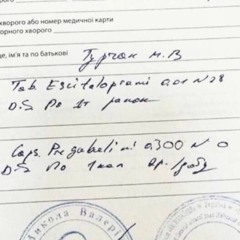 хворого або номер медичної карти
орного хворого
ще, ім'я та по батькові Гурчак М. В
Tab. Escitaloprami 0.01 N 28
D.S По 1т ранок
Caps. Pregabalini 0300 N
D.S По 1 кап
Микола Валерій